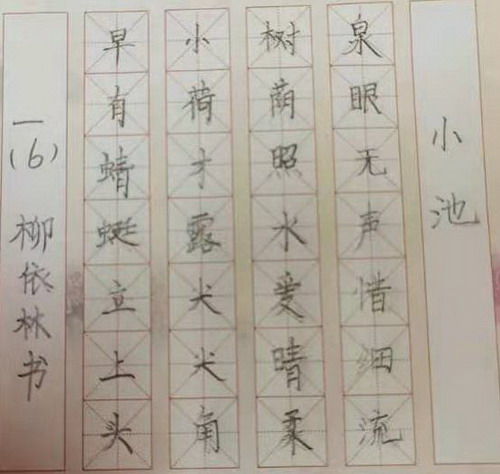 小池
泉眼无声惜细流
树荫照水爱晴柔
小荷才露尖尖角
早有蜻蜓立上头
一(6) 柳依林书